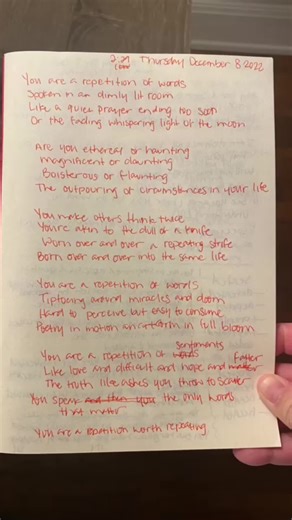 2.27 Thursday December 8 2022
1000
You are a repetition of words
Spoken in an dimly lit room
Like a quiet prayer ending too soon
Or the fading whispering light of the moon
Are you ethereal or haunting
magnificent or daunting
Boisterous or flaunting
The outpouring of circumstances in your life
You make others think twice
You're akin to the dull of a knife
Worn over and over a repeating strife
Born over and over into the same life
You are a repetition of words
Tiptoeing around miracles and doom
Hard to perceive but easy to consume
Poetry in motion an art form in full bloom
You are a repetition of words sentiments
Like love and difficult and hope and matter falter
The truth like ashes you throw to scatter
You speak and then you the only words
that matter
You are a repetition worth repeating